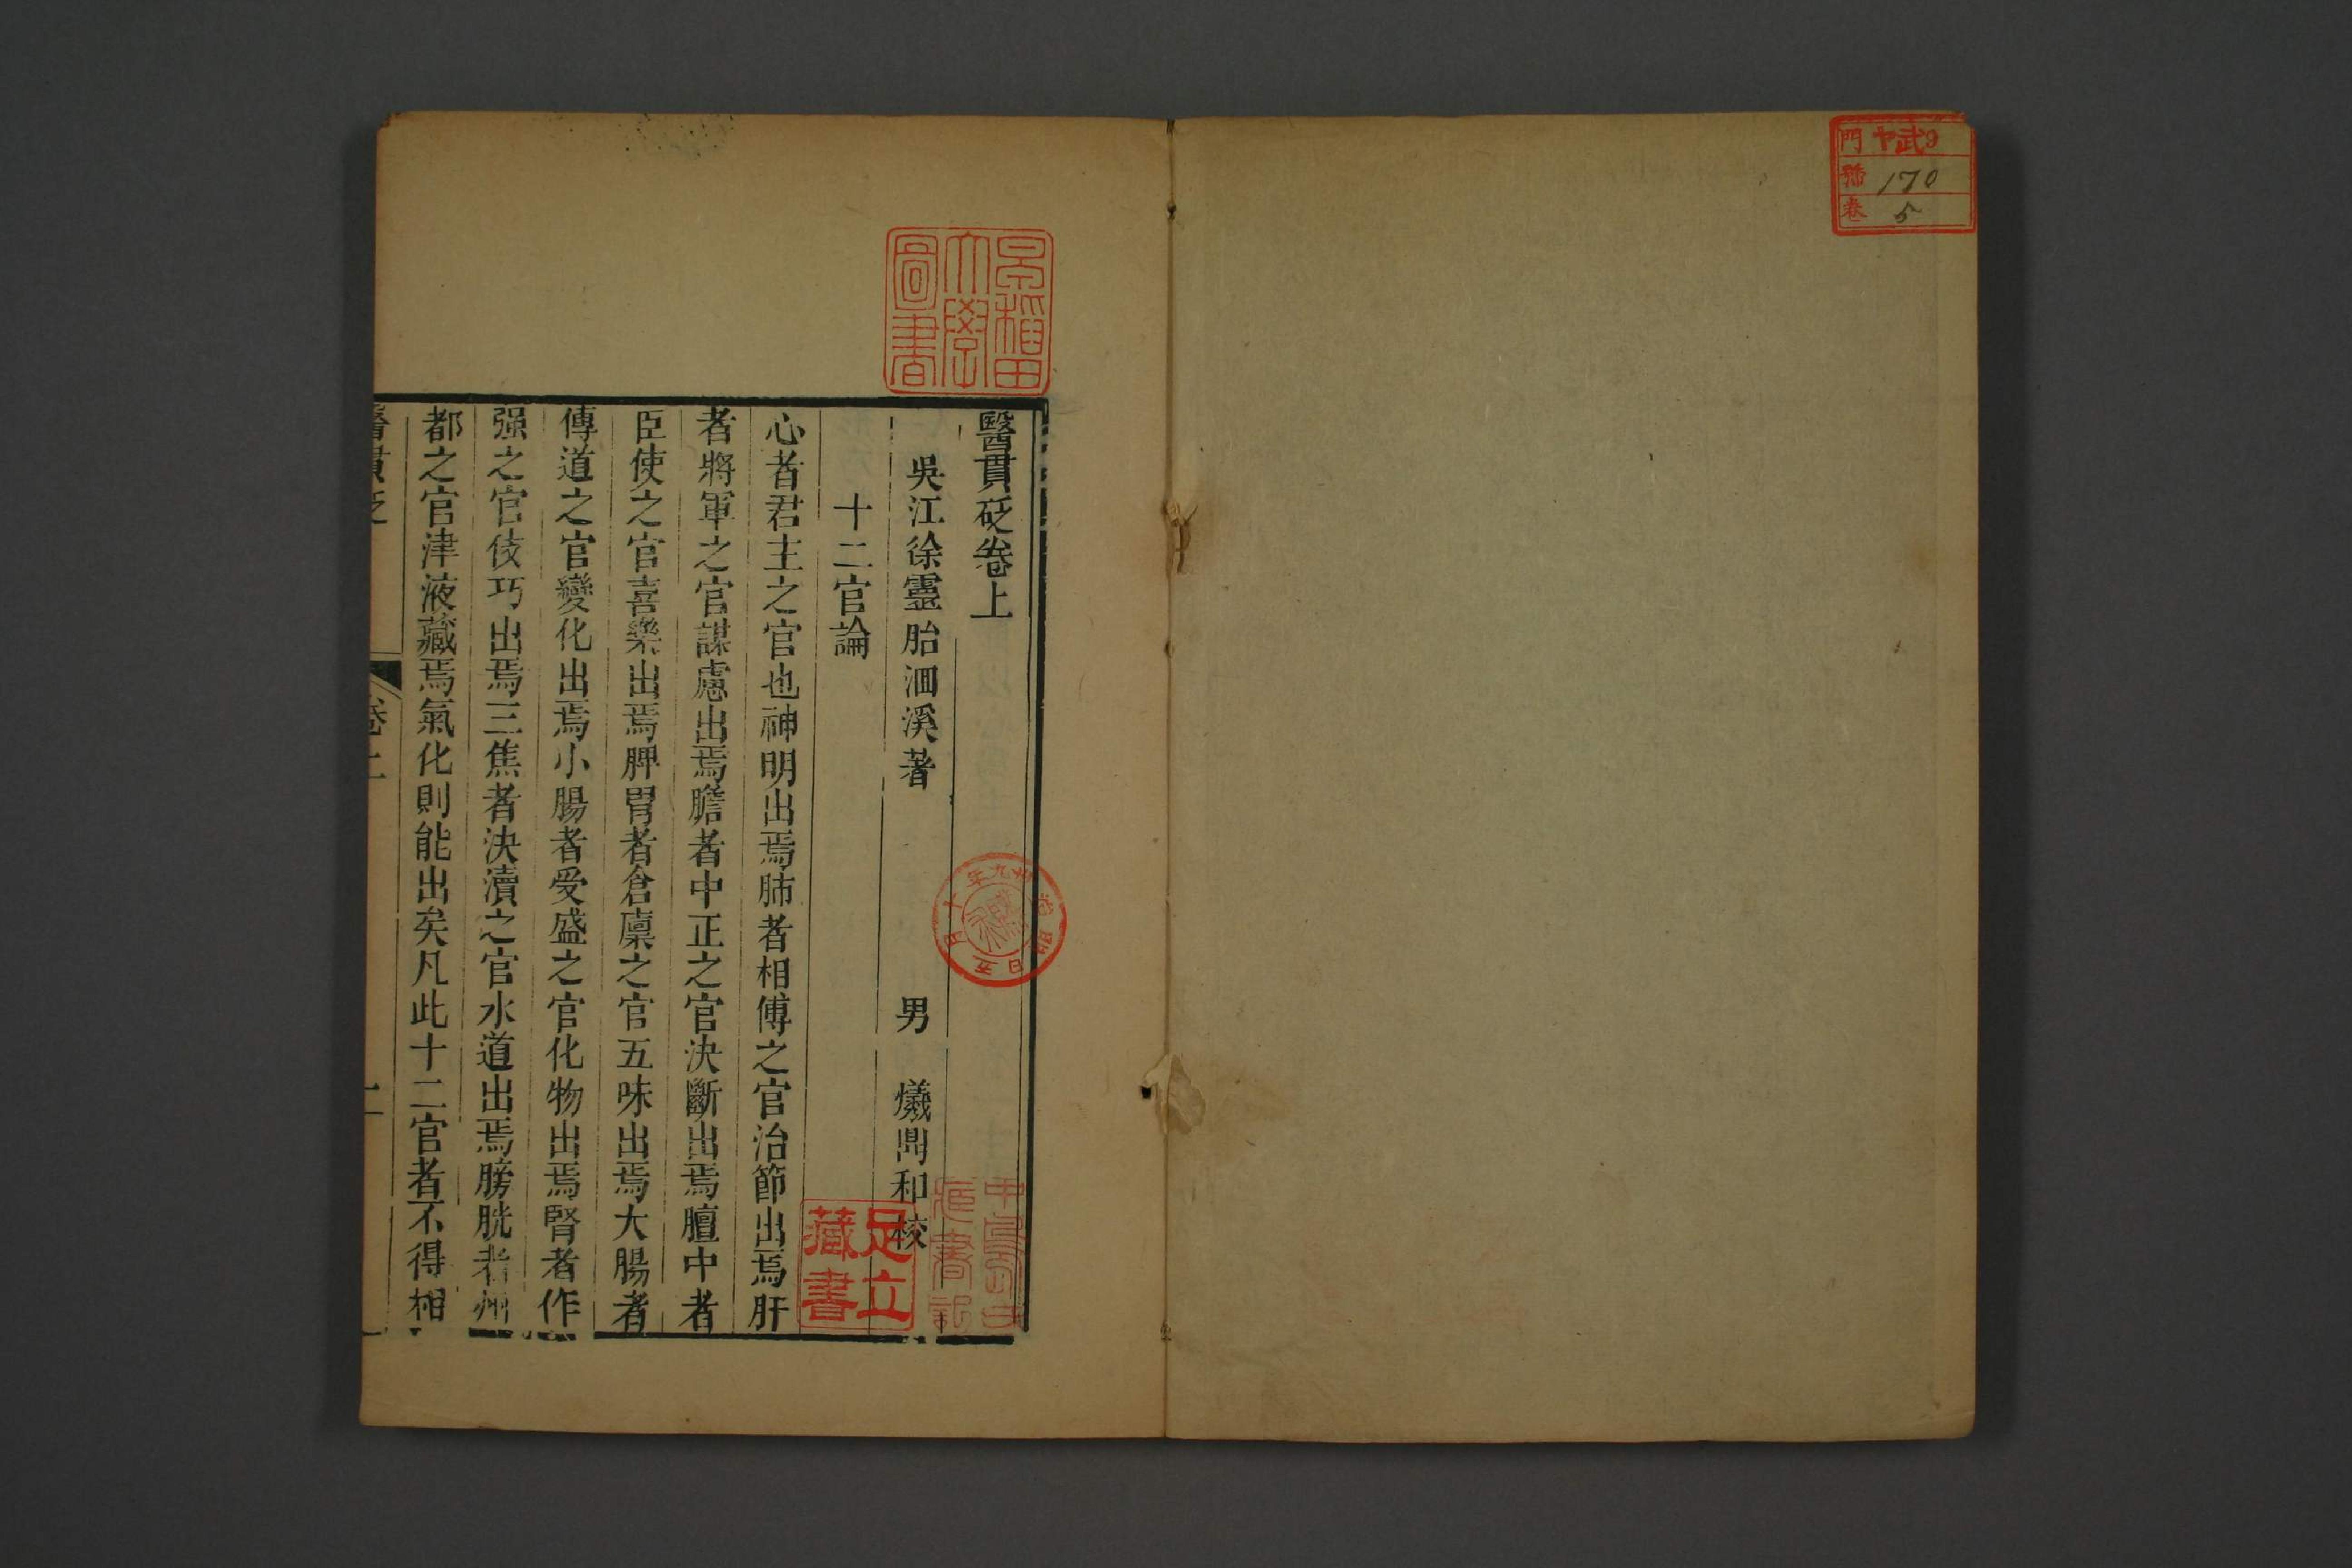 門 ヤ武9
號 170
卷 5
早稲田大學圖書
醫貫砭卷上
吳江徐靈胎洄溪著 男 爔鼎和校
十二官論
心者君主之官也神明出焉肺者相傅之官治節出焉肝
者將軍之官謀慮出焉膽者中正之官決斷出焉膻中者
臣使之官喜樂出焉脾胃者倉廩之官五味出焉大腸者
傳道之官變化出焉小腸者受盛之官化物出焉腎者作
强之官伎巧出焉三焦者決瀆之官水道出焉膀胱者州
都之官津液藏焉氣化則能出矣凡此十二官者不得相
醫貫砭 卷上 一
足立藏書